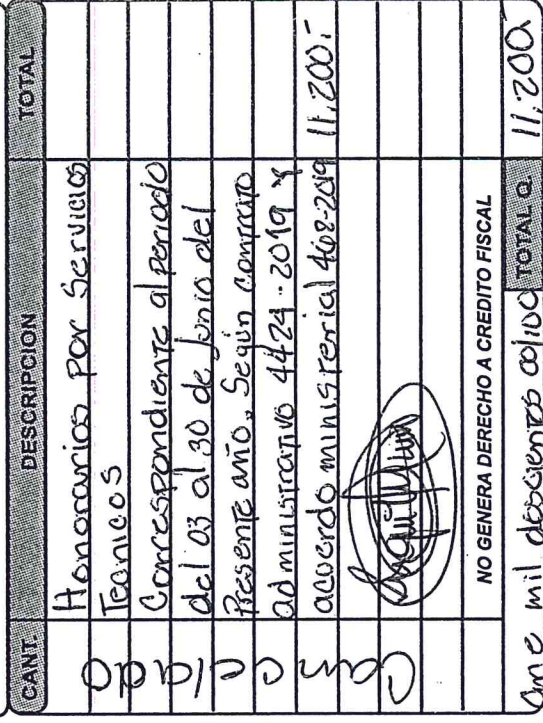 CANT. DESCRIPCION TOTAL
Honorarios por Servicios
Tecnicos
Correspondiente al periodo
del 03 al 30 de Junio del
Presente año, Según contrato
administrativo 4424-2019 y
acuerdo ministerial 468-2019 11,200.-
Cancelado
NO GENERA DERECHO A CREDITO FISCAL
mil doscientos TOTAL Q. 11,200.-